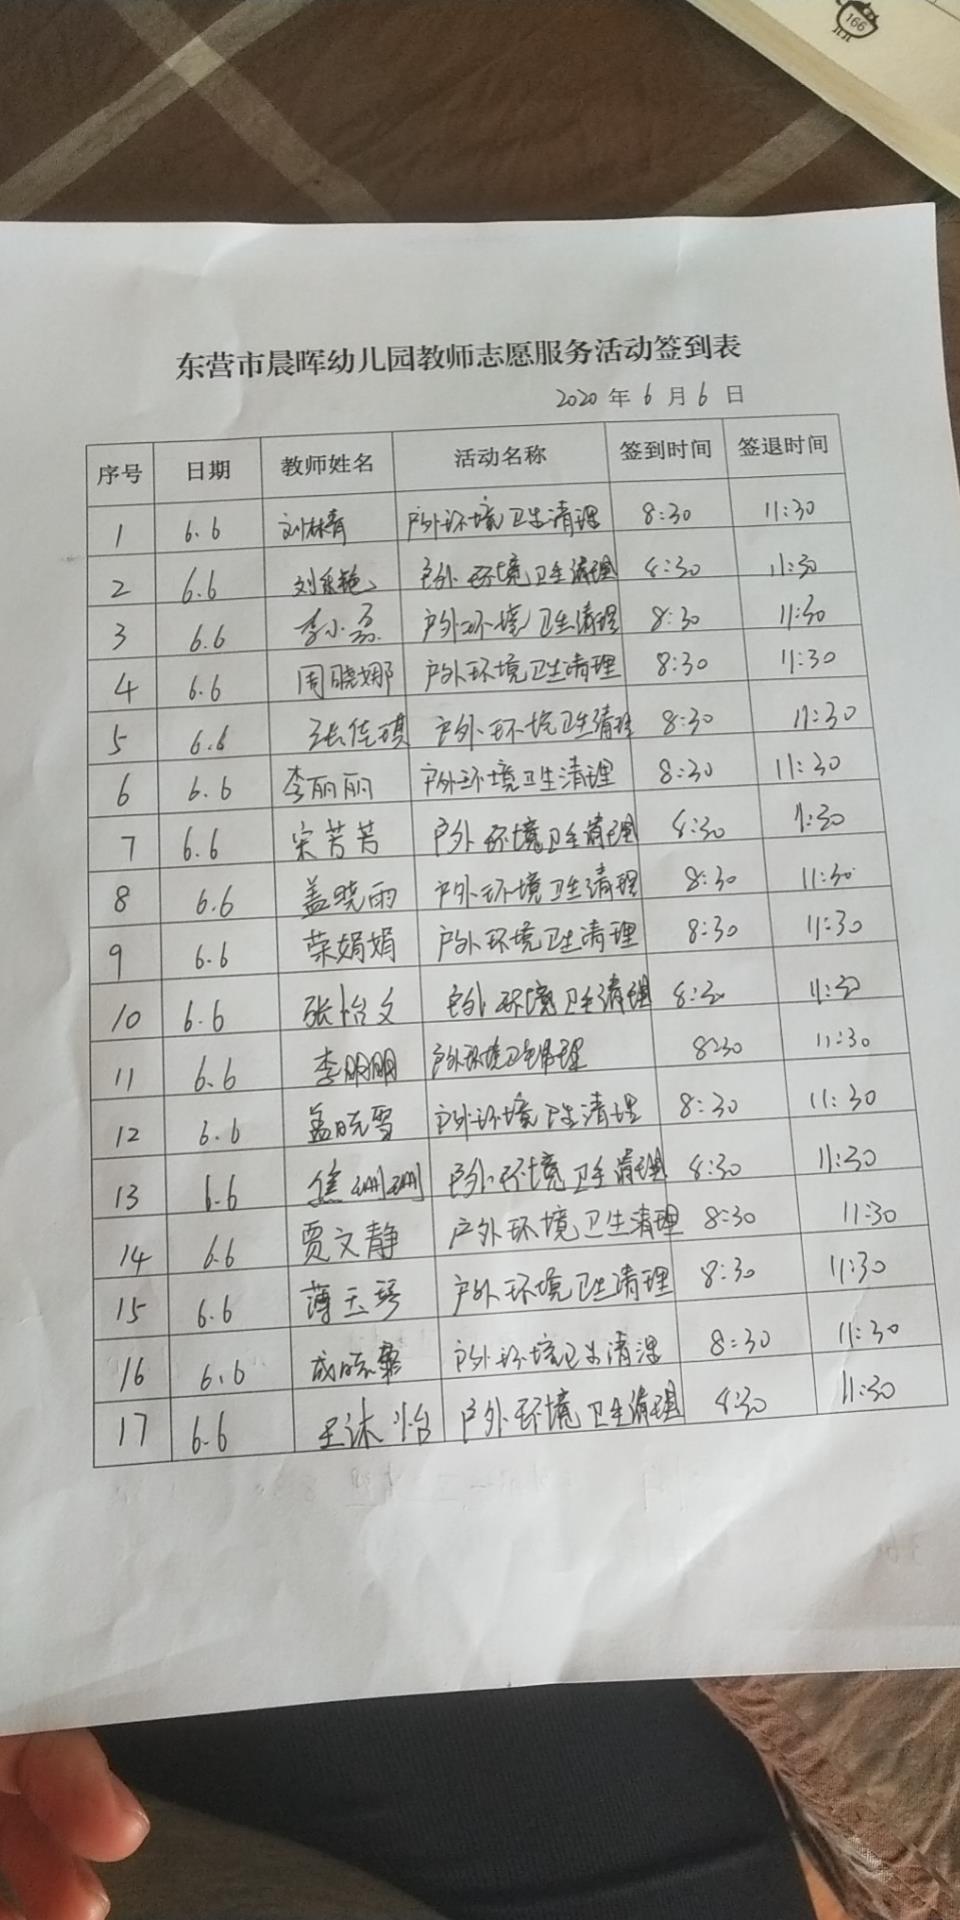 166
东营市晨晖幼儿园教师志愿服务活动签到表
2020 年 6 月 6 日
序号 日期 教师姓名 活动名称 签到时间 签退时间
1 6.6 刘林青 户外环境卫生清理 8:30 11:30
2 6.6 刘 艳 户外环境卫生清理 8:30 11:30
3 6.6 李小 户外环境卫生清理 8:30 11:30
4 6.6 周晓娜 户外环境卫生清理 8:30 11:30
5 6.6 张佳琪 户外环境卫生清理 8:30 11:30
6 6.6 李丽丽 户外环境卫生清理 8:30 11:30
7 6.6 宋芳芳 户外环境卫生清理 8:30 11:30
8 6.6 盖晓雨 户外环境卫生清理 8:30 11:30
9 6.6 荣娟娟 户外环境卫生清理 8:30 11:30
10 6.6 张怡文 户外环境卫生清理 8:30 11:30
11 6.6 李朋朋 户外环境卫生清理 8:30 11:30
12 6.6 孟晓雪 户外环境卫生清理 8:30 11:30
13 6.6 焦珊珊 户外环境卫生清理 8:30 11:30
14 6.6 贾文静 户外环境卫生清理 8:30 11:30
15 6.6 薄玉琴 户外环境卫生清理 8:30 11:30
16 6.6 成晓 户外环境卫生清理 8:30 11:30
17 6.6 王沐怡 户外环境卫生清理 8:30 11:30